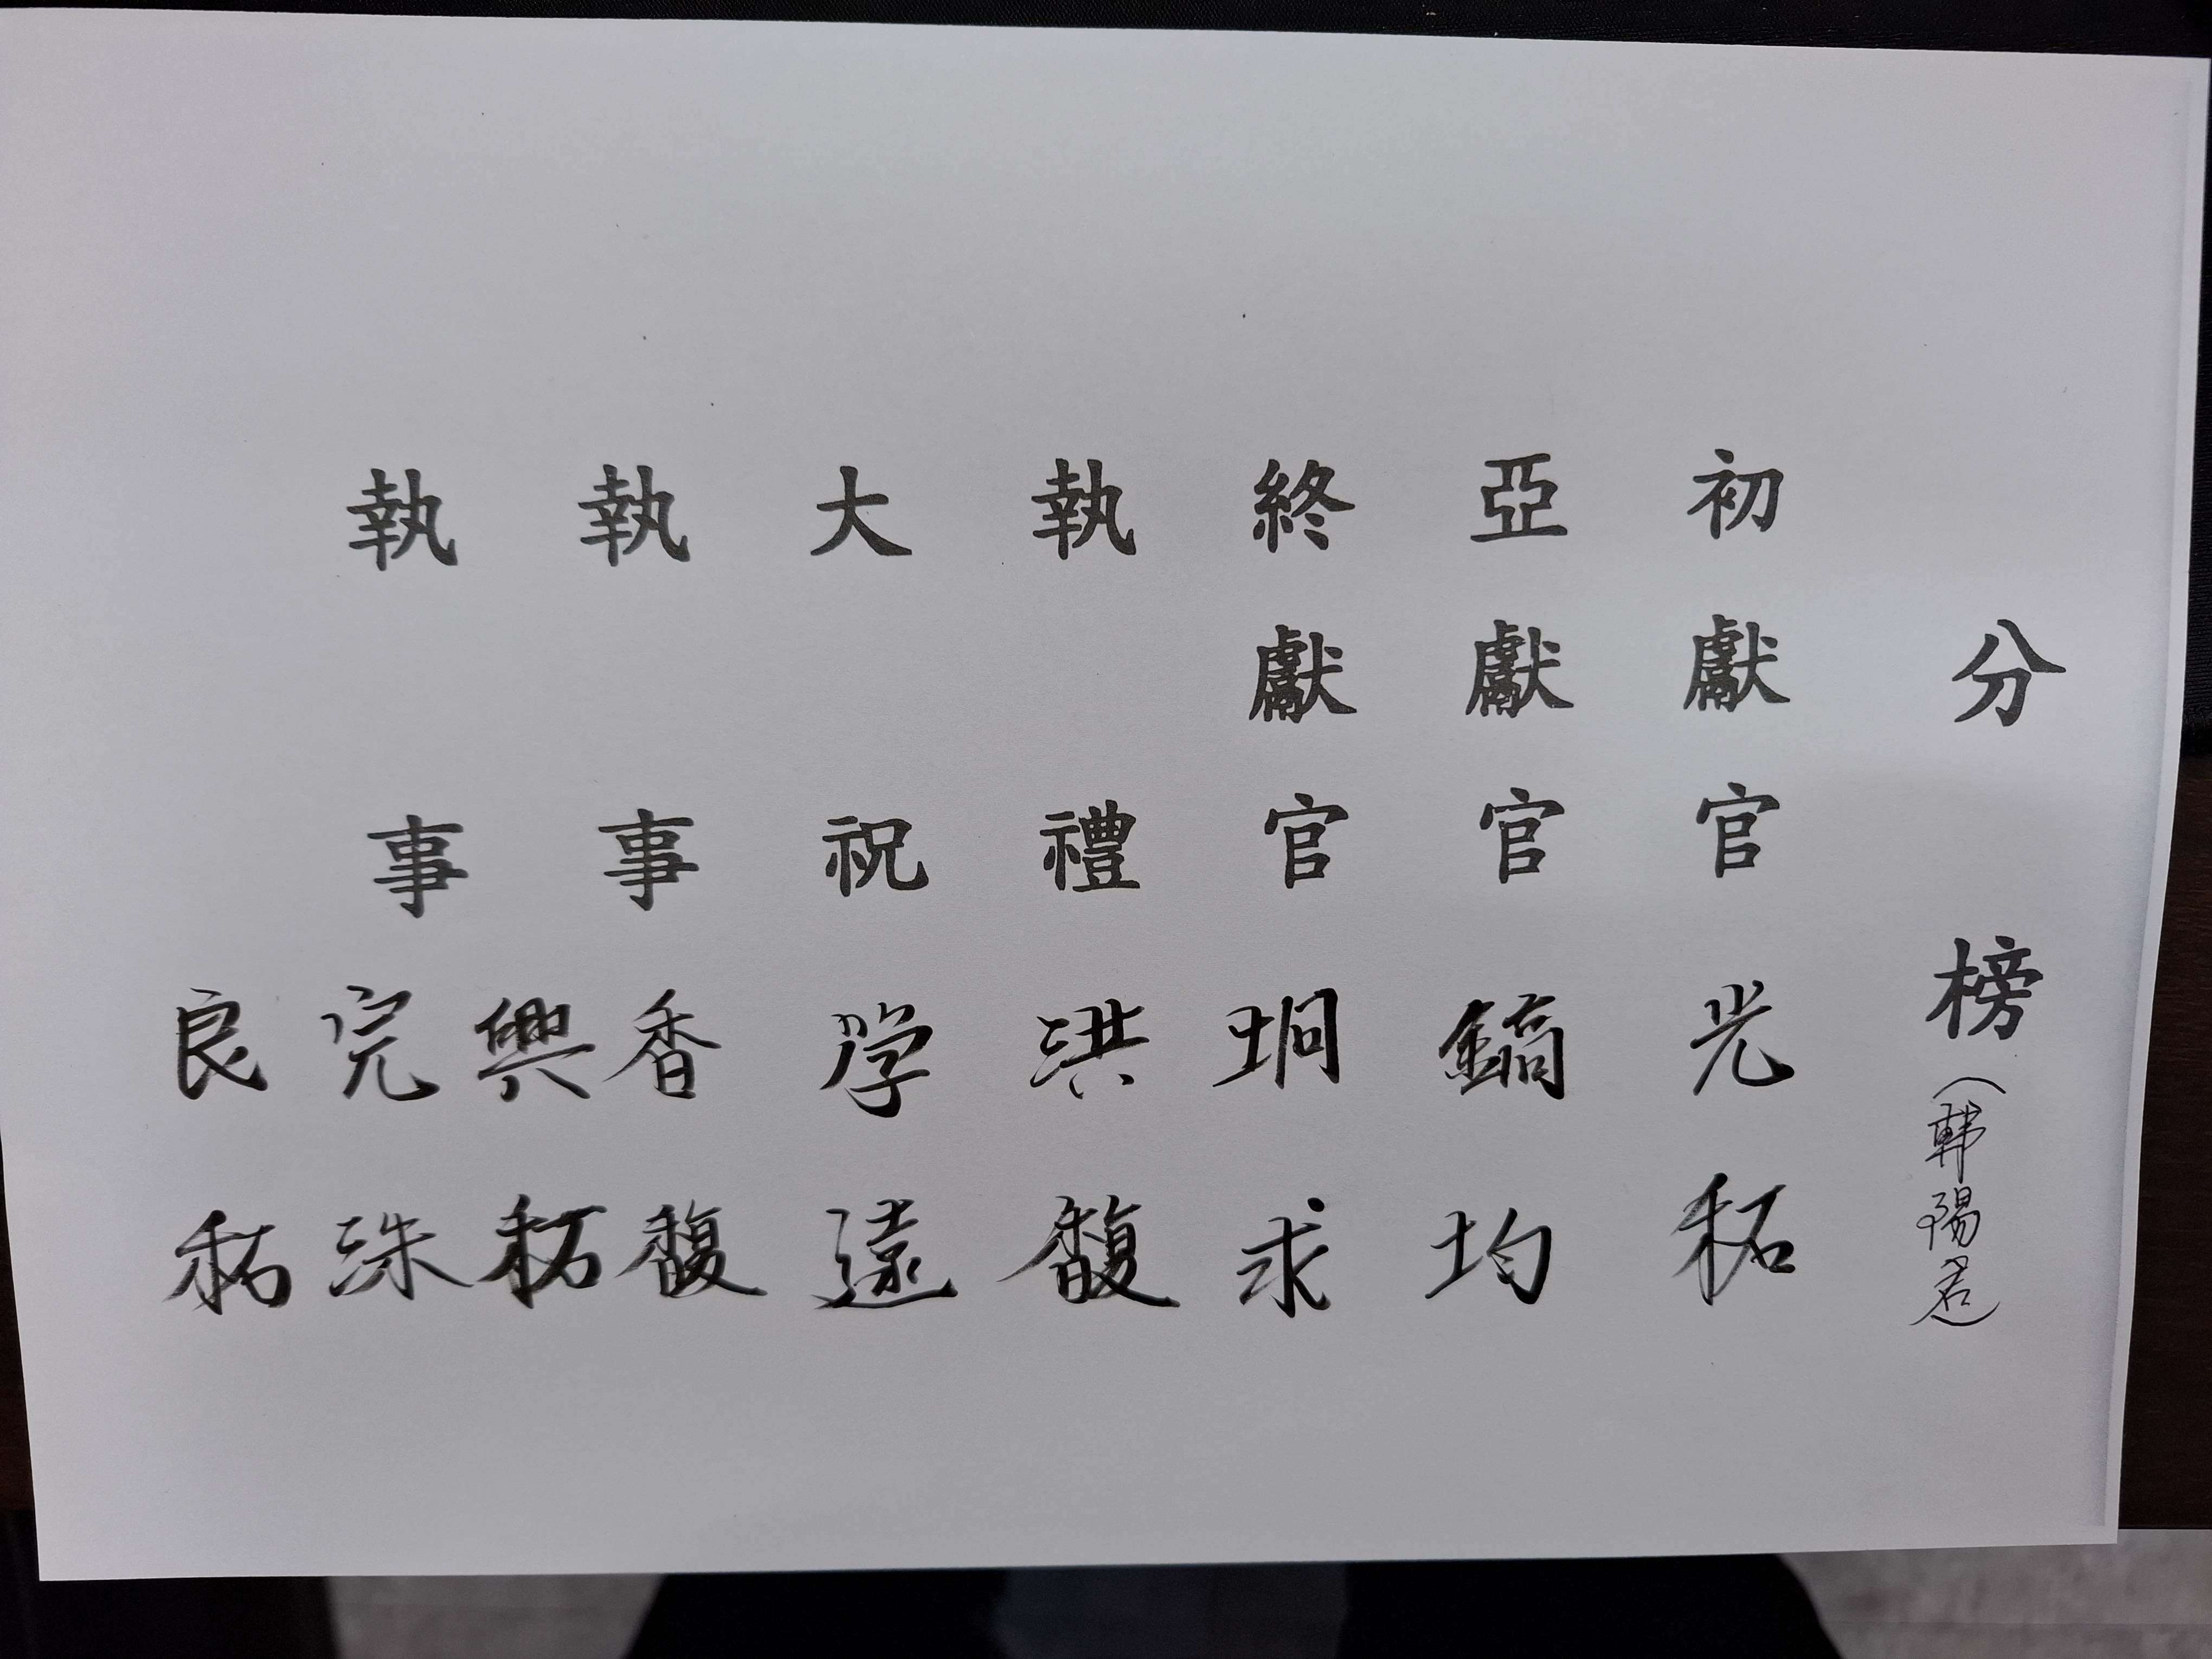 分榜(韓陽君)
初獻官 光祏
亞獻官 鎬均
終獻官 坰求
執禮 洪馥
大祝 学遠
執事 香馥
興祏
執事 完洙
良祐